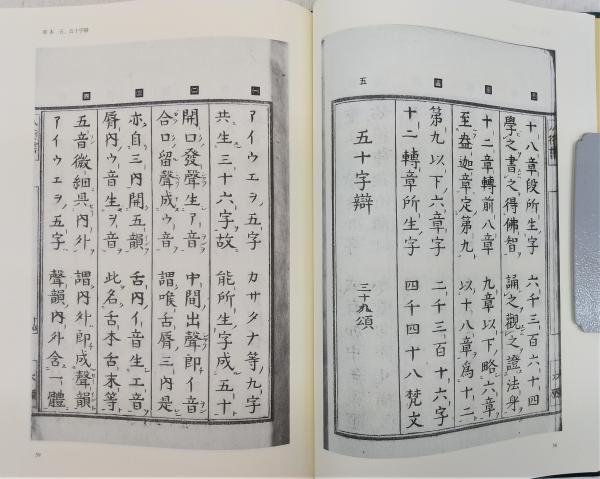 十八章段所生字 六千三百六十四
學之書之得佛智 誦之觀之證法身
十二章轉前八章 九章以下略六章
至盎迦章定第九 以十八章爲十二
第九以下六章字 二千三百十六字
十二轉章所生字 四千四十八梵文
五
五十字辯 三十九頌
58
五、五十字辯
アイウエヲ五字 カサタナ等九字
共生三十六字故 能所生字成五十
開口發聲生ア音 中間出聲即イ音
合口留聲成ウ音 謂喉舌脣三内是
亦自三内開五韻 舌内イ音生エ音
脣内ウ音生ヲ音 此名舌本舌末等
五音微細具内外 謂内外即成聲韻
アイウエヲ五字 聲韻内外含一體
59